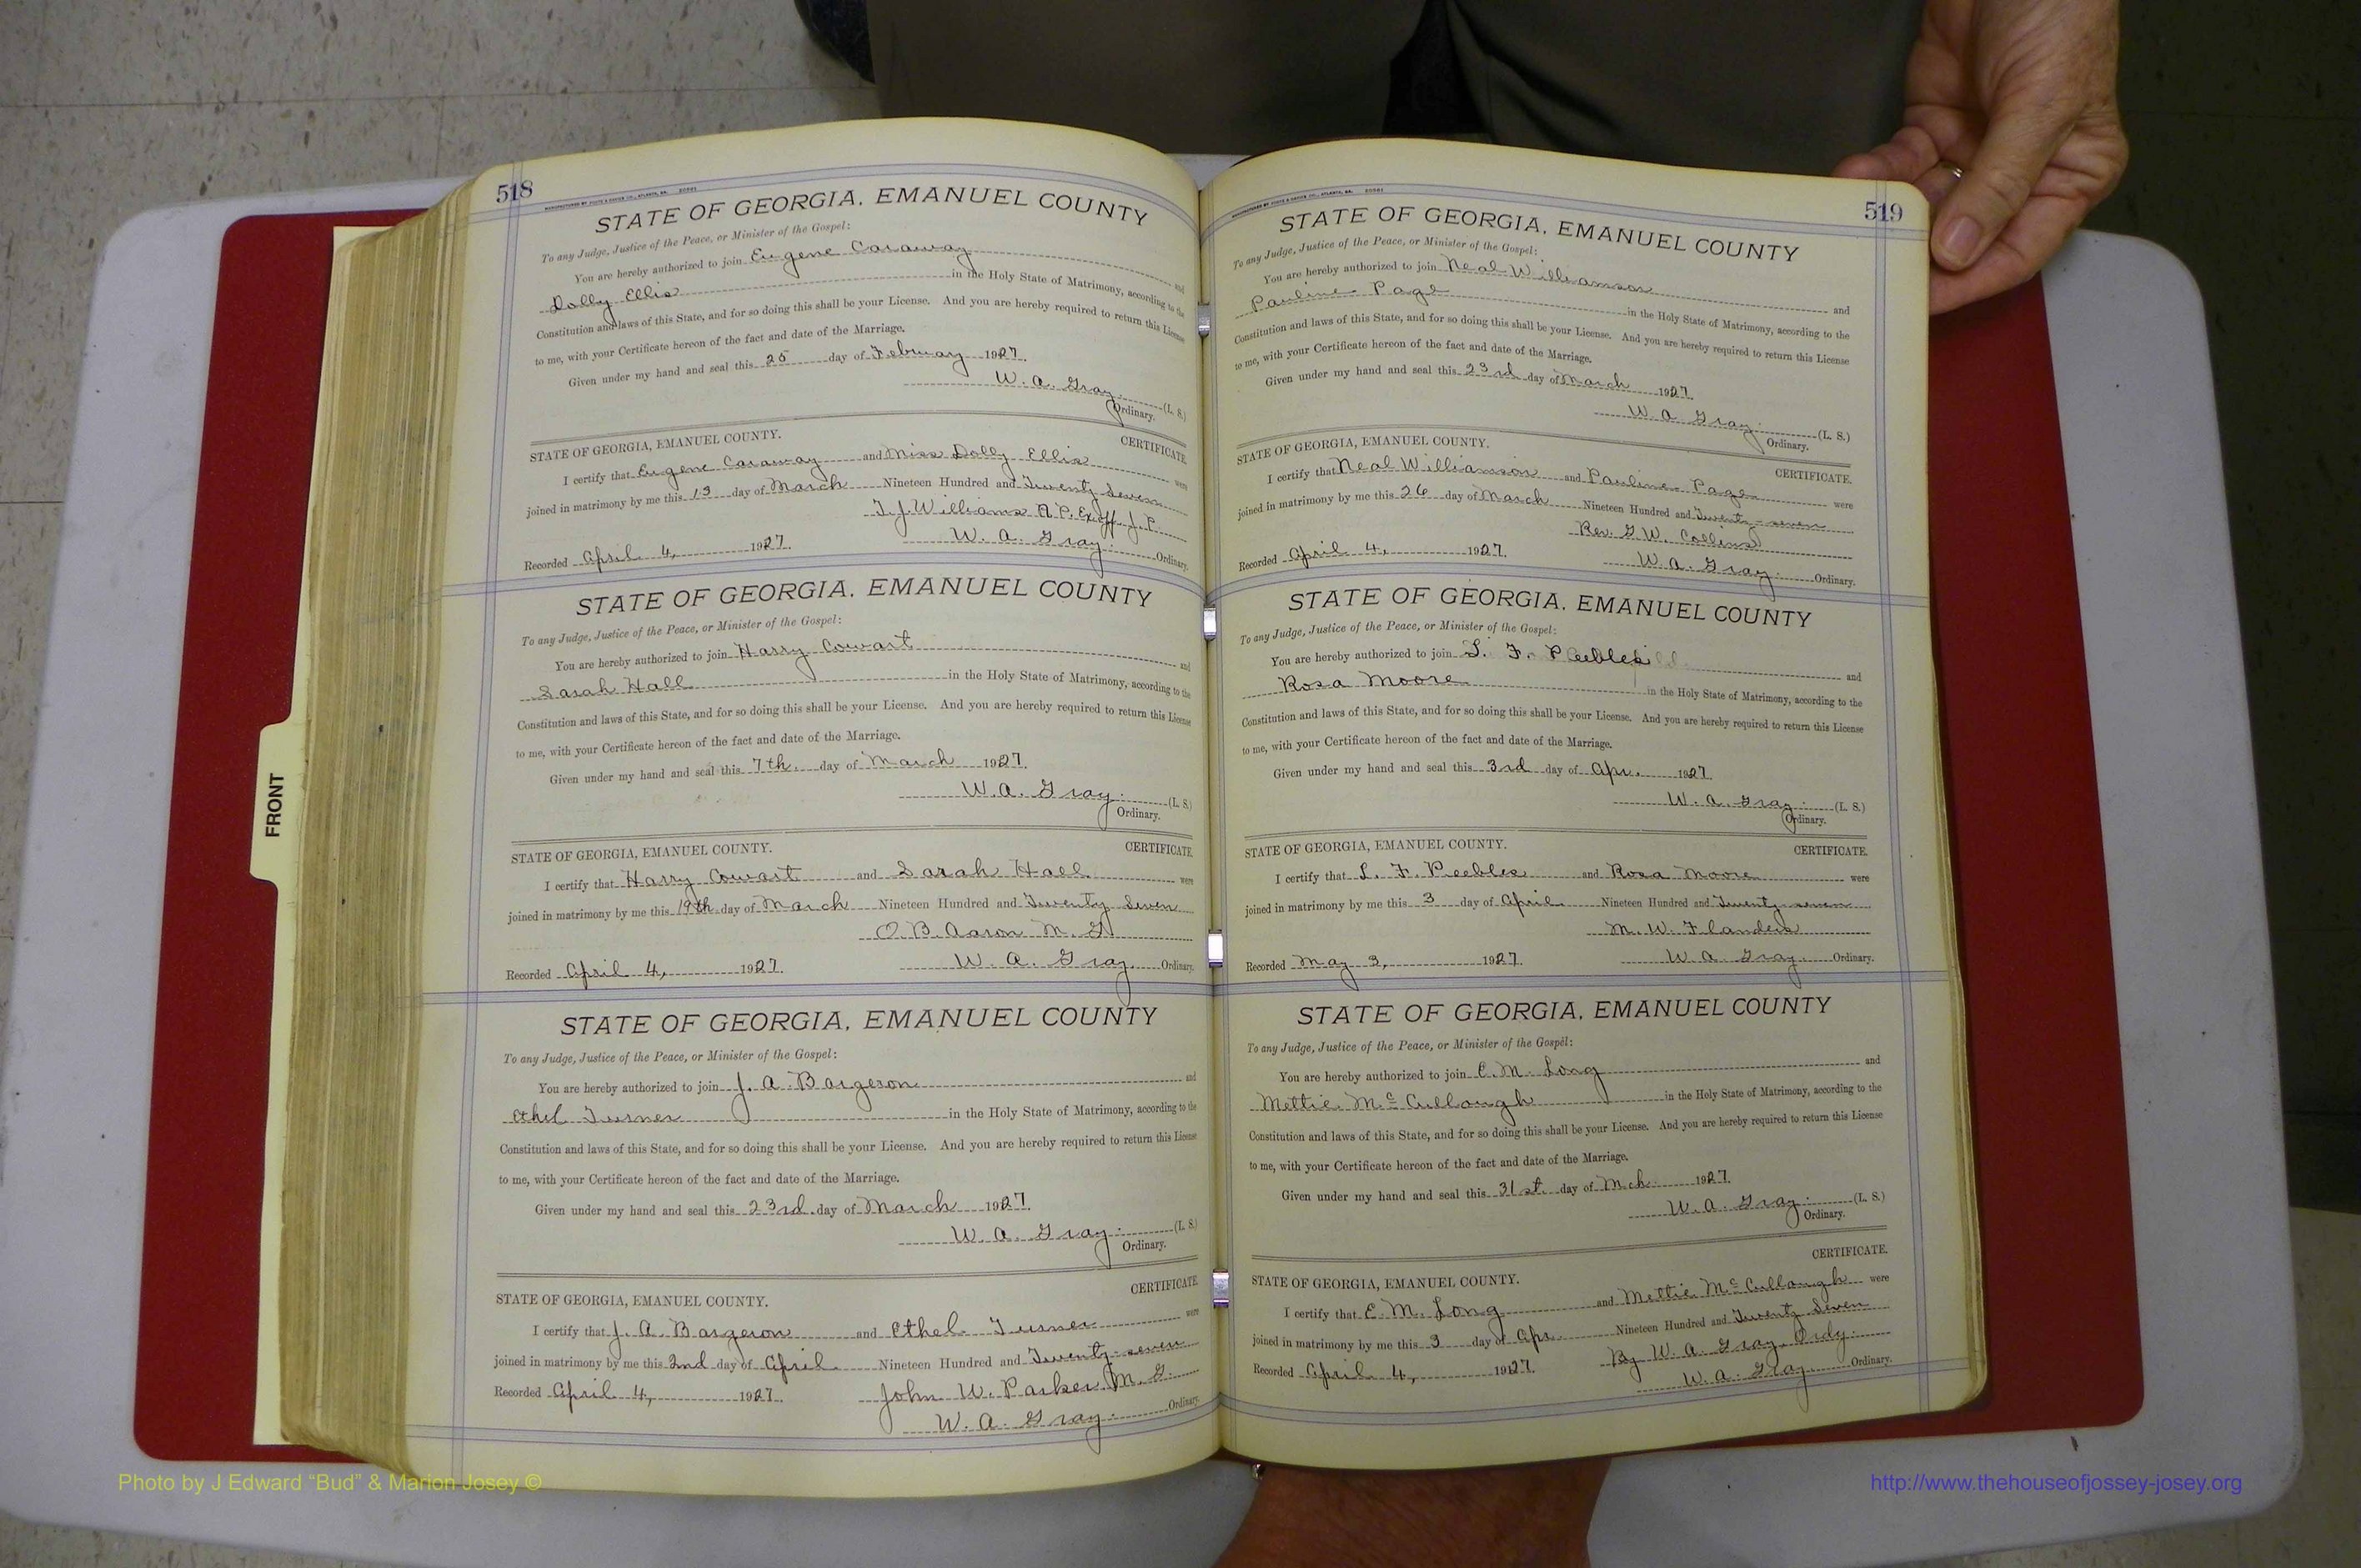 518
STATE OF GEORGIA, EMANUEL COUNTY
To any Judge, Justice of the Peace, or Minister of the Gospel:
You are hereby authorized to join Eugene Caraway and
Dolly Ellis in the Holy State of Matrimony, according to the
Constitution and laws of this State, and for so doing this shall be your License. And you are hereby required to return this License
to me, with your Certificate hereon of the fact and date of the Marriage.
Given under my hand and seal this 25 day of February 1927.
W. A. Gray (L. S.)
Ordinary.
STATE OF GEORGIA, EMANUEL COUNTY. CERTIFICATE.
I certify that Eugene Caraway and Miss Dolly Ellis were
joined in matrimony by me this 13 day of March Nineteen Hundred and Twenty Seven
T. J. Williams N. P. Ex off J. P.
Recorded April 4, 1927. W. A. Gray. Ordinary.
STATE OF GEORGIA, EMANUEL COUNTY
To any Judge, Justice of the Peace, or Minister of the Gospel:
You are hereby authorized to join Harry Cowart and
Sarah Hall in the Holy State of Matrimony, according to the
Constitution and laws of this State, and for so doing this shall be your License. And you are hereby required to return this License
to me, with your Certificate hereon of the fact and date of the Marriage.
Given under my hand and seal this 7th. day of March 1927.
W. A. Gray. (L. S.)
Ordinary.
STATE OF GEORGIA, EMANUEL COUNTY. CERTIFICATE.
I certify that Harry Cowart and Sarah Hall were
joined in matrimony by me this 19th day of March Nineteen Hundred and Twenty Seven
O. B. Aaron M. G.
Recorded April 4, 1927. W. A. Gray. Ordinary.
STATE OF GEORGIA, EMANUEL COUNTY
To any Judge, Justice of the Peace, or Minister of the Gospel:
You are hereby authorized to join J. A. Bargeron and
Ethel Turner in the Holy State of Matrimony, according to the
Constitution and laws of this State, and for so doing this shall be your License. And you are hereby required to return this License
to me, with your Certificate hereon of the fact and date of the Marriage.
Given under my hand and seal this 23rd. day of March 1927.
W. A. Gray. (L. S.)
Ordinary.
CERTIFICATE
STATE OF GEORGIA, EMANUEL COUNTY.
I certify that J. A. Bargeron and Ethel Turner were
joined in matrimony by me this 2nd day of April Nineteen Hundred and Twenty-seven
Recorded April 4, 1927. John W. Parker M. G.
W. A. Gray. Ordinary.
519
STATE OF GEORGIA, EMANUEL COUNTY
To any Judge, Justice of the Peace, or Minister of the Gospel:
You are hereby authorized to join Neal Williamson and
Pauline Page in the Holy State of Matrimony, according to the
Constitution and laws of this State, and for so doing this shall be your License. And you are hereby required to return this License
to me, with your Certificate hereon of the fact and date of the Marriage.
Given under my hand and seal this 23rd day of March 1927.
W. A. Gray. (L. S.)
Ordinary.
STATE OF GEORGIA, EMANUEL COUNTY. CERTIFICATE.
I certify that Neal Williamson and Pauline Page were
joined in matrimony by me this 26 day of March Nineteen Hundred and Twenty-seven
Rev. G. W. Collins
Recorded April 4, 1927. W. A. Gray. Ordinary.
STATE OF GEORGIA, EMANUEL COUNTY
To any Judge, Justice of the Peace, or Minister of the Gospel:
You are hereby authorized to join L. F. Peebles and
Rosa Moore in the Holy State of Matrimony, according to the
Constitution and laws of this State, and for so doing this shall be your License. And you are hereby required to return this License
to me, with your Certificate hereon of the fact and date of the Marriage.
Given under my hand and seal this 3rd day of Apr. 1927.
W. A. Gray. (L. S.)
Ordinary.
STATE OF GEORGIA, EMANUEL COUNTY. CERTIFICATE.
I certify that L. F. Peebles and Rosa Moore were
joined in matrimony by me this 3 day of April Nineteen Hundred and Twenty seven
M. W. Flanders
Recorded May 3, 1927. W. A. Gray. Ordinary.
STATE OF GEORGIA, EMANUEL COUNTY
To any Judge, Justice of the Peace, or Minister of the Gospel:
You are hereby authorized to join E. M. Long and
Mettie McCullough in the Holy State of Matrimony, according to the
Constitution and laws of this State, and for so doing this shall be your License. And you are hereby required to return this License
to me, with your Certificate hereon of the fact and date of the Marriage.
Given under my hand and seal this 31st. day of Mch. 1927.
W. A. Gray. (L. S.)
Ordinary.
CERTIFICATE.
STATE OF GEORGIA, EMANUEL COUNTY.
I certify that E. M. Long and Mettie McCullough were
joined in matrimony by me this 3 day of Apr. Nineteen Hundred and Twenty Seven
By W. A. Gray, Ordy.
Recorded April 4, 1927. W. A. Gray. Ordinary.
FRONT
Photo by J Edward “Bud” & Marion Josey ©
http://www.thehouseofjossey-josey.org